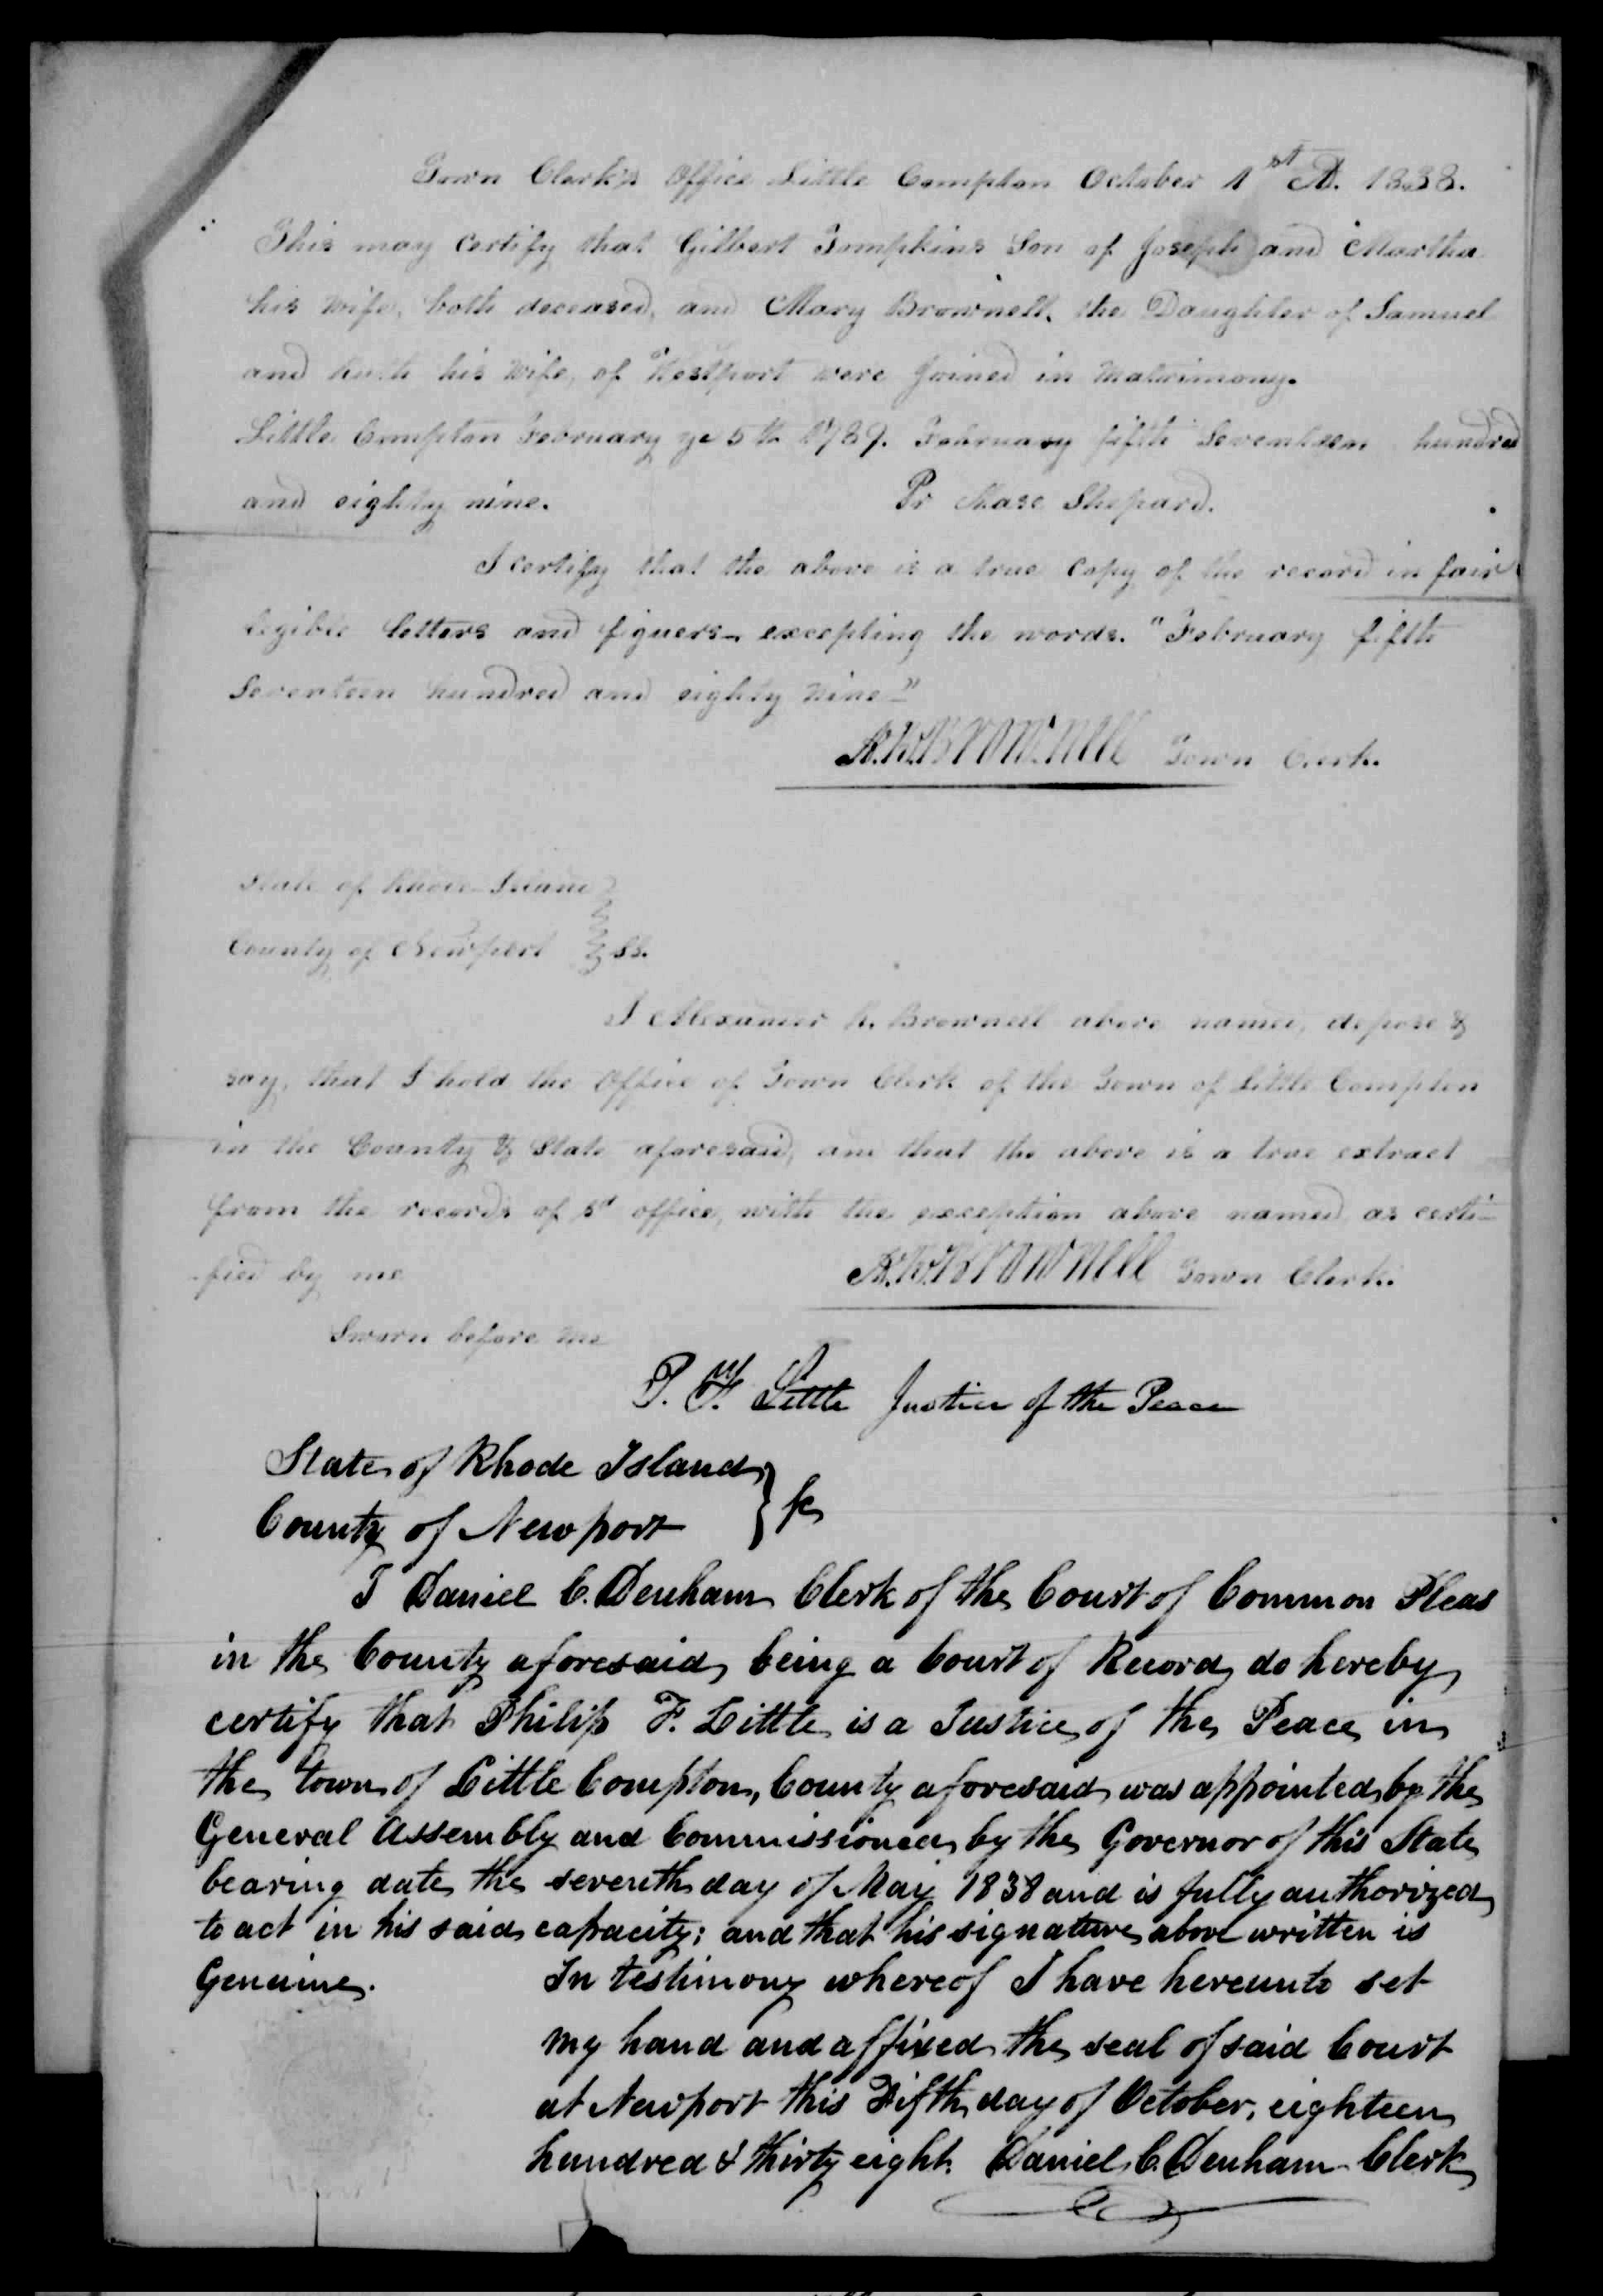 Town Clerk's Office Little Compton October 1st AD. 1838.
This may certify that Gilbert Tompkins Son of Joseph and Martha
his wife, both deceased, and Mary Brownell, the Daughter of Samuel
and Ruth his Wife, of Westport were joined in Matrimony.
Little Compton February ye 5th 1789. February fifth Seventeen hundred
and eighty nine. Pr Mase Shepard.
I certify that the above is a true Copy of the record in fair
legible letters and figuers excepting the words. "February fifth
Seventeen hundred and eighty nine"
Brownell Town Clerk.
State of Rhode-Island
County of Newport } SS.
I Alexander Brownell above named, depose &
say, that I hold the Office of Town Clerk of the Town of Little Compton
in the County & State aforesaid, and that the above is a true extract
from the records of sd office, with the exception above named as certi-
-fied by me Brownell Town Clerk.
Sworn before me
P. F. Little Justice of the Peace
State of Rhode Island
County of Newport } Sc
I Daniel C. Denham Clerk of the Court of Common Pleas
in the County aforesaid, being a Court of Record, do hereby
certify that Philip F. Little is a Justice of the Peace in
the town of Little Compton, County aforesaid was appointed by the
General Assembly and Commissioned by the Governor of this State
bearing date the seventh day of May 1838 and is fully authorized
to act in his said capacity; and that his signature above written is
Genuine. In testimony whereof I have hereunto set
my hand and affixed the seal of said Court
at Newport this Fifth day of October, eighteen
hundred & thirty eight. Daniel C. Denham Clerk